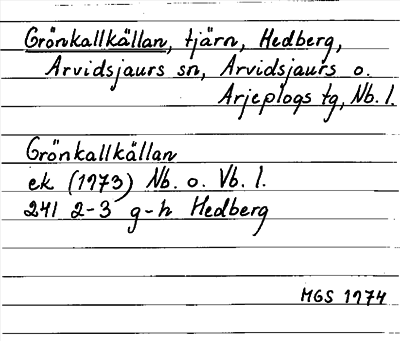 Grönkallkällan, tjärn, Hedberg,
Arvidsjaurs sn, Arvidsjaurs o.
Arjeplogs tg, Nb. l.
Grönkallkällan
ek (1973) Nb. o. Vb. l.
241 2-3 g-h Hedberg
MGS 1974